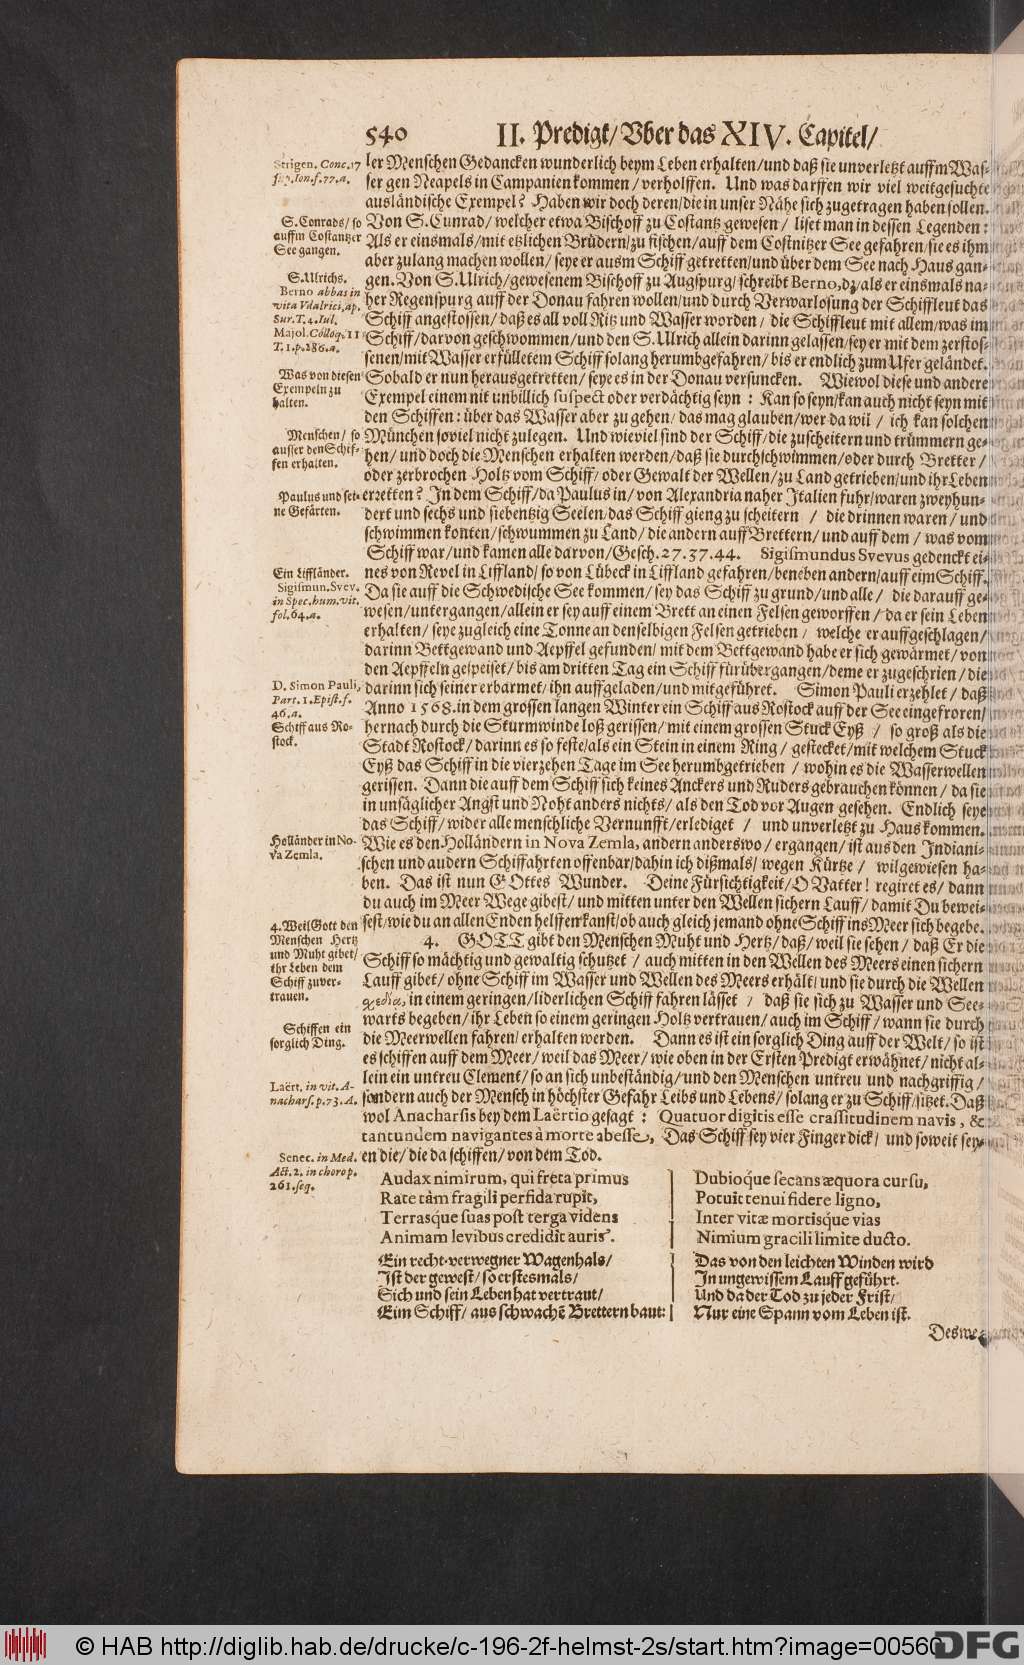 540 II. Predigt/ Vber das XIV. Capitel/
Strigen. Conc. 17
sup. Ion. f. 77. a.
ler Menschen Gedancken wunderlich beym Leben erhalten/ und daß sie unverletzt auffm Was-
ser gen Neapels in Campanien kommen/ verholffen. Und was darffen wir viel weitgesuchte
ausländische Exempel? Haben wir doch deren/ die in unser Nähe sich zugetragen haben sollen.
S. Conrads/ so
auffm Costantzer
See gangen.
Von S. Cunrad/ welcher etwa Bischoff zu Costantz gewesen/ liset man in dessen Legenden:
Als er einsmals/ mit etzlichen Brüdern/ zu fischen/ auff dem Costnitzer See gefahren/ sie es ihm
aber zulang machen wollen/ seye er ausm Schiff getretten/ und über dem See nach Haus gan-
S. Ulrichs.
Berno abbas in
vita Vdalrici, ap.
Sur. T. 4. Iul.
Majol. Colloq. 11.
T. 1. p. 286. a.
gen. Von S. Ulrich/ gewesenem Bischoff zu Augspurg/ schreibt Berno, dz/ als er einsmals na-
her Regenspurg auff der Donau fahren wollen/ und durch Verwarlosung der Schiffleut das
Schiff angestossen/ daß es all voll Ritz und Wasser worden/ die Schiffleut mit allem/ was im
Schiff/ darvon geschwommen/ und den S. Ulrich allein darinn gelassen/ sey er mit dem zerstos-
senen/ mit Wasser erfülletem Schiff solang herumbgefahren/ bis er endlich zum Ufer geländet.
Was von diesen
Exempeln zu
halten.
Sobald er nun herausgetretten/ seye es in der Donau versuncken. Wiewol diese und andere
Exempel einem nit unbillich suspect oder verdächtig seyn: Kan so seyn/ kan auch nicht seyn mit
den Schiffen: über das Wasser aber zu gehen/ das mag glauben/ wer da wil/ ich kan solchen
Menschen/ so
ausser den Schif-
fen erhalten.
München soviel nicht zulegen. Und wieviel sind der Schiff/ die zuscheitern und trümmern ge-
hen/ und doch die Menschen erhalten werden/ daß sie durchschwimmen/ oder durch Bretter/
oder zerbrochen Holtz vom Schiff/ oder Gewalt der Wellen/ zu Land getrieben/ und ihr Leben
Paulus und sei-
ne Gefärten.
erretten? In dem Schiff/ da Paulus in/ von Alexandria naher Italien fuhr/ waren zweyhun-
dert und sechs und siebentzig Seelen/ das Schiff gieng zu scheitern/ die drinnen waren/ und
schwimmen konten/ schwummen zu Land/ die andern auff Brettern/ und auff dem/ was vom
Schiff war/ und kamen alle darvon/ Gesch. 27. 37. 44. Sigismundus Svevus gedenckt ei-
Ein Liffländer.
Sigismun. Svev.
in Spec. hum. vit.
fol. 64. a.
nes von Revel in Liffland/ so von Lübeck in Liffland gefahren/ beneben andern/ auff eim Schiff.
Da sie auff die Schwedische See kommen/ sey das Schiff zu grund/ und alle/ die darauff ge-
wesen/ untergangen/ allein er sey auff einem Brett an einen Felsen geworffen/ da er sein Leben
erhalten/ seye zugleich eine Tonne an denselbigen Felsen getrieben/ welche er auffgeschlagen/
darinn Bettgewand und Aepffel gefunden/ mit dem Bettgewand habe er sich gewärmet/ von
den Aepffeln gespeiset/ bis am dritten Tag ein Schiff fürübergangen/ deme er zugeschrien/ die
D. Simon Pauli,
Part. 1. Epist. f.
46. a.
Schiff aus Ro-
stock.
darinn sich seiner erbarmet/ ihn auffgeladen/ und mitgeführet. Simon Pauli erzehlet/ daß
Anno 1568. in dem grossen langen Winter ein Schiff aus Rostock auff der See eingefroren/
hernach durch die Sturmwinde loß gerissen/ mit einem grossen Stuck Eyß/ so groß als die
Stadt Rostock/ darinn es so feste/ als ein Stein in einem Ring/ gestecket/ mit welchem Stuck
Eyß das Schiff in die vierzehen Tage im See herumbgetrieben/ wohin es die Wasserwellen
gerissen. Dann die auff dem Schiff sich keines Anckers und Ruders gebrauchen können/ da sie
in unsäglicher Angst und Noht anders nichts/ als den Tod vor Augen gesehen. Endlich seye
das Schiff/ wider alle menschliche Vernunfft/ erlediget/ und unverletzt zu Haus kommen.
Holländer in No-
va Zemla.
Wie es den Holländern in Nova Zemla, andern anderswo/ ergangen/ ist aus den Indiani-
schen und andern Schiffahrten offenbar/ dahin ich dißmals/ wegen Kürtze/ wil gewiesen ha-
ben. Das ist nun GOttes Wunder. Deine Fürsichtigkeit/ O Vatter! regiret es/ dann
du auch im Meer Wege gibest/ und mitten unter den Wellen sichern Lauff/ damit Du bewei-
sest/ wie du an allen Enden helffen kanst/ ob auch gleich jemand ohne Schiff ins Meer sich begebe.
4. Weil Gott den
Menschen Hertz
und Muht gibet/
ihr Leben dem
Schiff zuver-
trauen.
4. GOTT gibt den Menschen Muht und Hertz/ daß/ weil sie sehen/ daß Er die
Schiff so mächtig und gewaltig schützet/ auch mitten in den Wellen des Meers einen sichern
Lauff gibet/ ohne Schiff im Wasser und Wellen des Meers erhält/ und sie durch die Wellen
σχεδία, in einem geringen/ liderlichen Schiff fahren lässet/ daß sie sich zu Wasser und See-
warts begeben/ ihr Leben so einem geringen Holtz vertrauen/ auch im Schiff/ wann sie durch
Schiffen ein
sorglich Ding.
die Meerwellen fahren/ erhalten werden. Dann es ist ein sorglich Ding auff der Welt/ so ist
es schiffen auff dem Meer/ weil das Meer/ wie oben in der Ersten Predigt erwähnet/ nicht al-
lein ein untreu Element/ so an sich unbeständig/ und den Menschen untreu und nachgriffig/
Laërt. in vit. A-
nachars. p. 73. A.
sondern auch der Mensch in höchster Gefahr Leibs und Lebens/ solang er zu Schiff sitzet. Daß
wol Anacharsis bey dem Laërtio gesagt: Quatuor digitis esse crassitudinem navis, &
tantundem navigantes à morte abesse, Das Schiff sey vier Finger dick/ und soweit sey-
en die/ die da schiffen/ von dem Tod.
Senec. in Med.
Act. 2. in choro p.
261. seq.
Audax nimirum, qui freta primus
Rate tàm fragili perfida rupit,
Terrasque suas post terga videns
Animam levibus credidit auris.
Dubioq́ue secans æquora cursu,
Potuit tenui fidere ligno,
Inter vitæ mortisq́ue vias
Nimium gracili limite ducto.
Ein recht-verwegner Wagenhals/
Ist der gewest/ so erstesmals/
Sich und sein Leben hat vertraut/
Eim Schiff/ aus schwachẽ Brettern baut:
Das von den leichten Winden wird
In ungewissem Lauff geführt.
Und da der Tod zu jeder Frist/
Nur eine Spann vom Leben ist.
Deswe-
© HAB http://diglib.hab.de/drucke/c-196-2f-helmst-2s/start.htm?image=00560
DFG